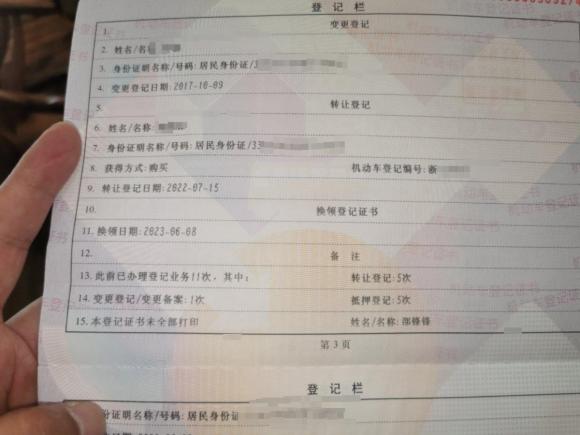 登记栏
1. 变更登记
2. 姓名/名称
3. 身份证明名称/号码:居民身份证/3
4. 变更登记日期:2017-10-09
5. 转让登记
6. 姓名/名称:
7. 身份证明名称/号码:居民身份证/33
8. 获得方式:购买 机动车登记编号:浙
9. 转让登记日期:2022-07-15
10. 换领登记证书
11. 换领日期:2023-06-08
12. 备 注
13. 此前已办理登记业务11次，其中: 转让登记:5次
14. 变更登记/变更备案:1次 抵押登记:5次
15. 本登记证书未全部打印 姓名/名称:邵锋锋
第 3 页
登记栏
份证明名称/号码:居民身份证